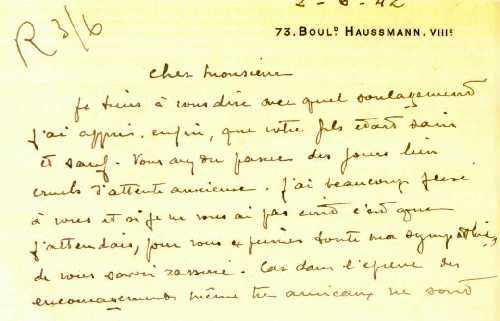 2-6-42
R 3/6
73, BOULD HAUSSMANN. VIIIE
Cher Monsieur
Je tiens à vous dire avec quel soulagement
j'ai appris, enfin, que votre fils était sain
et sauf. Vous avez dû passer des jours bien
cruels d'attente anxieuse. J'ai beaucoup pensé
à vous et si je ne vous ai pas écrit c'est que
j'attendais, pour vous exprimer toute ma sympathie,
de vous savoir rassuré. Car dans l'épreuve des
encouragements même très amicaux ne sont